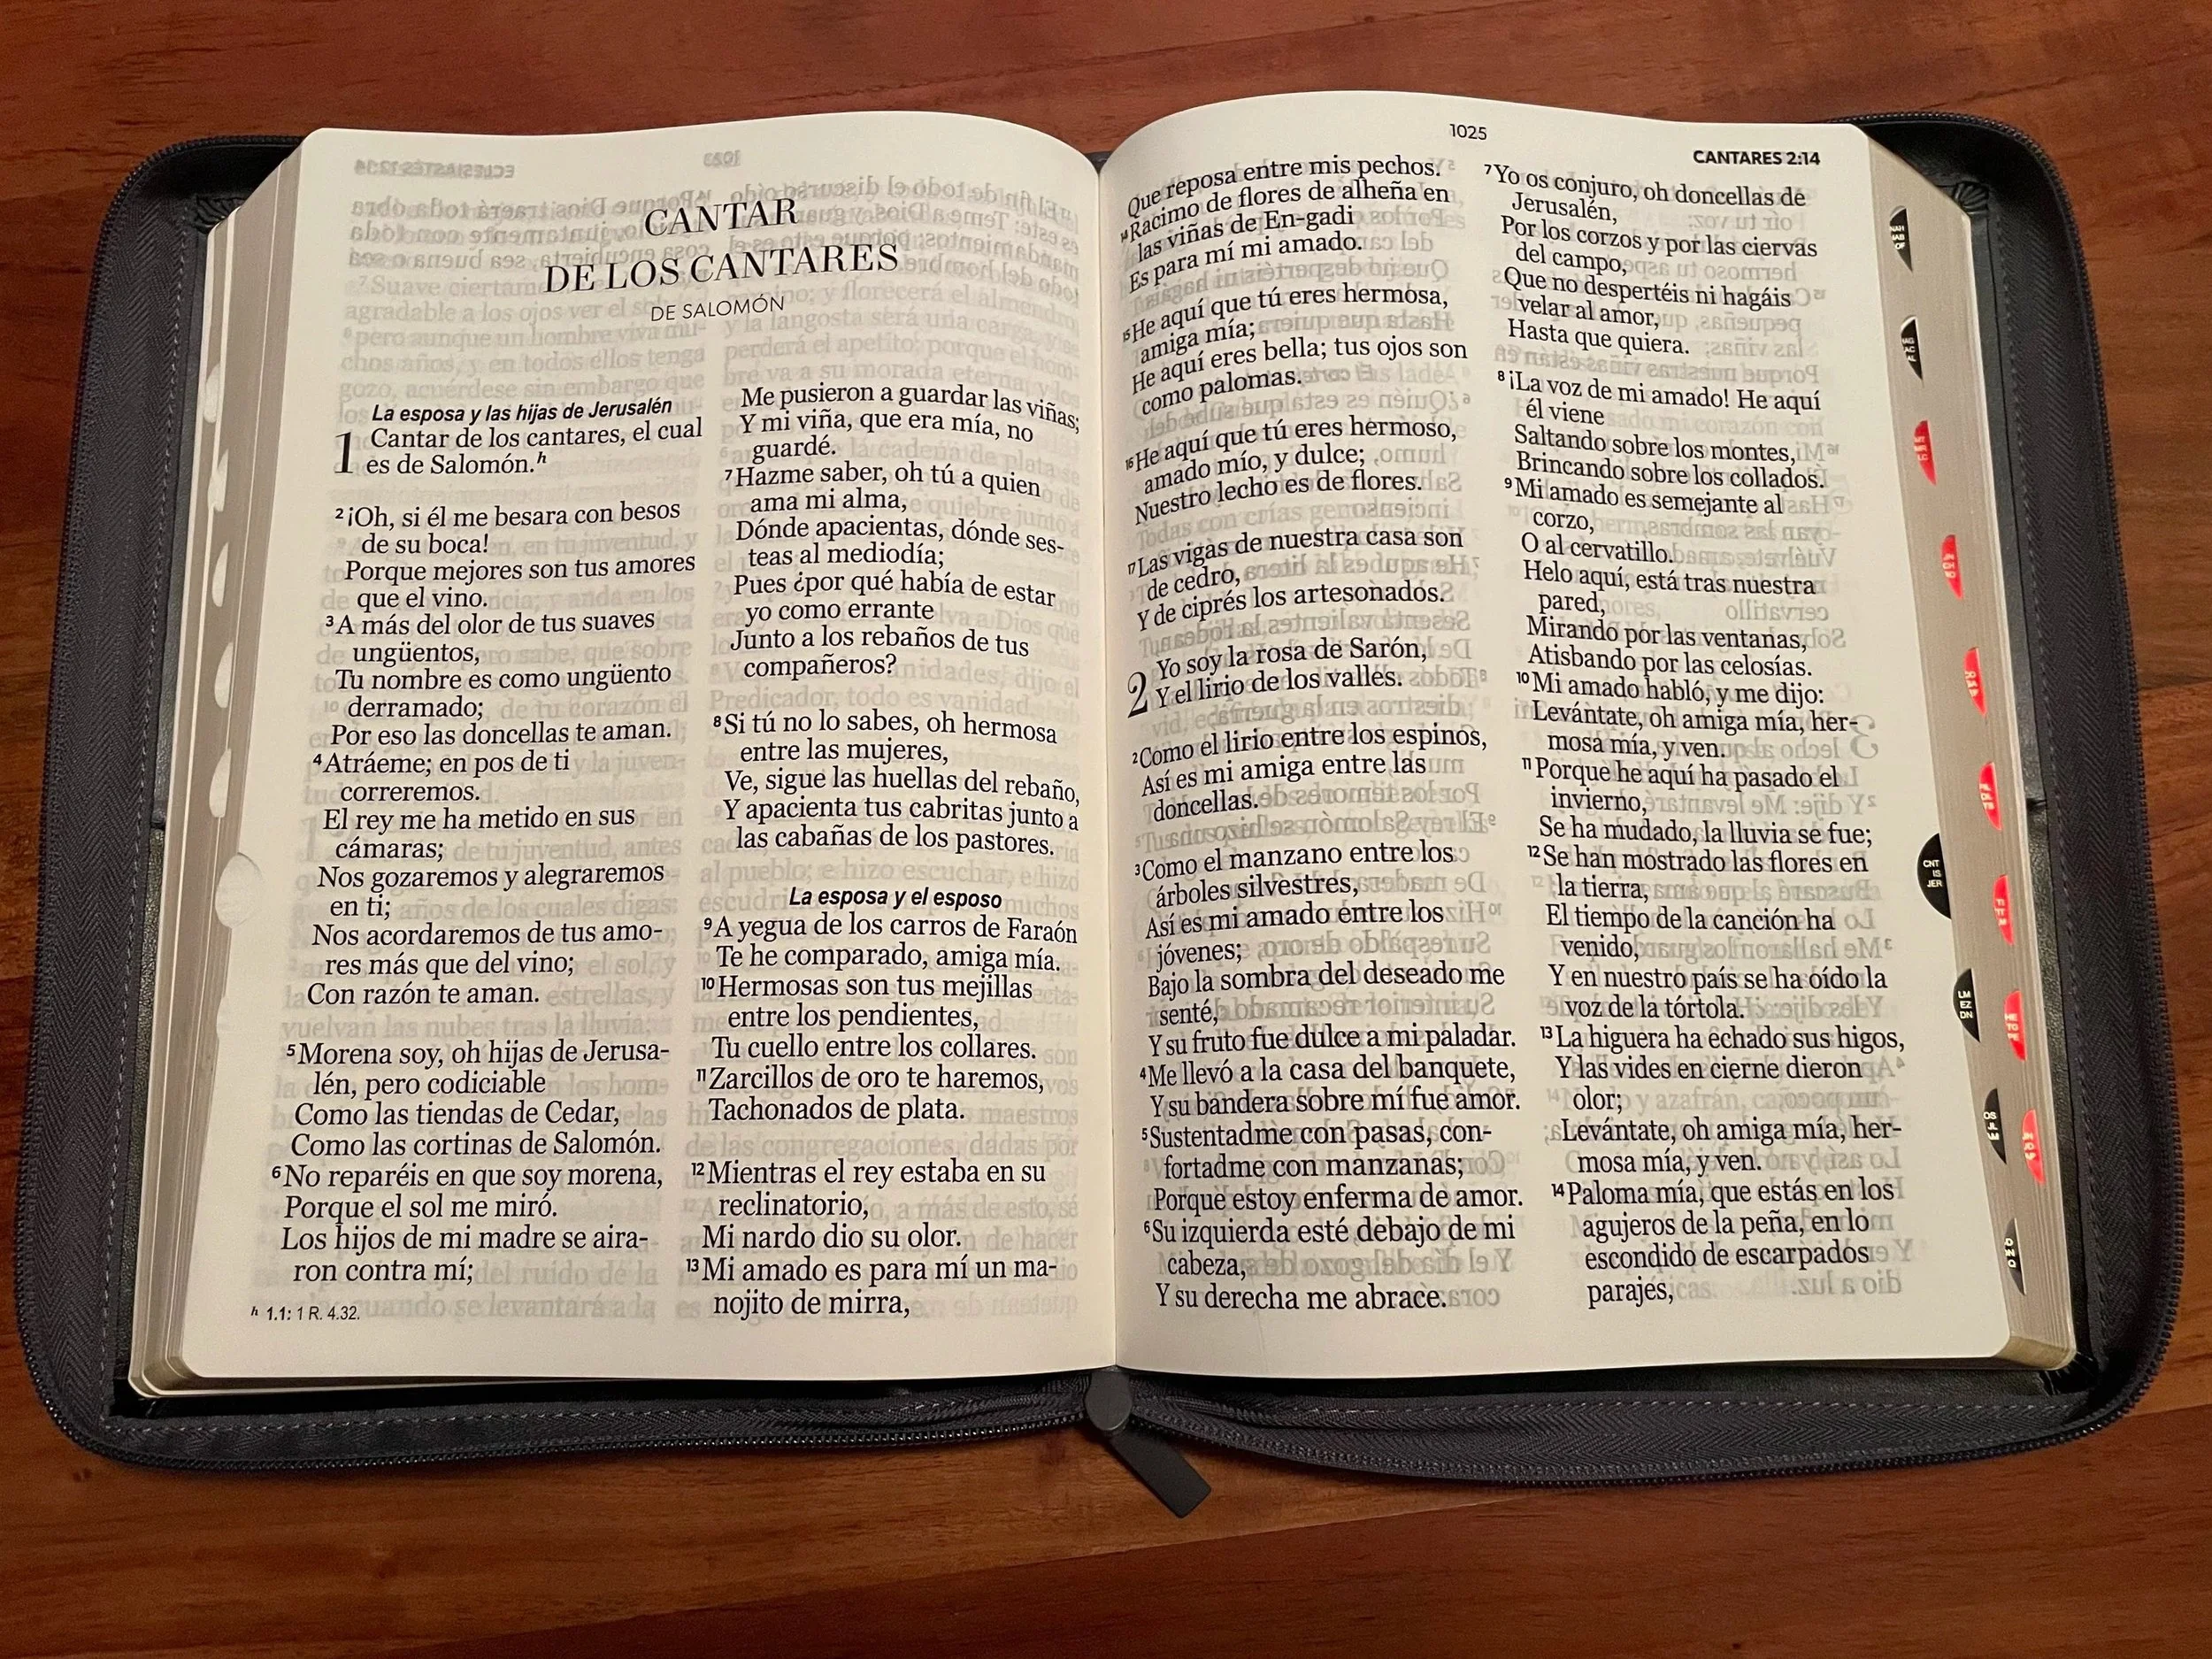 CANTAR
DE LOS CANTARES
DE SALOMÓN
La esposa y las hijas de Jerusalén
1 Cantar de los cantares, el cual
es de Salomón.h
2 ¡Oh, si él me besara con besos
de su boca!
Porque mejores son tus amores
que el vino.
3 A más del olor de tus suaves
ungüentos,
Tu nombre es como ungüento
derramado;
Por eso las doncellas te aman.
4 Atráeme; en pos de ti
correremos.
El rey me ha metido en sus
cámaras;
Nos gozaremos y alegraremos
en ti;
Nos acordaremos de tus amo-
res más que del vino;
Con razón te aman.
5 Morena soy, oh hijas de Jerusa-
lén, pero codiciable
Como las tiendas de Cedar,
Como las cortinas de Salomón.
6 No reparéis en que soy morena,
Porque el sol me miró.
Los hijos de mi madre se aira-
ron contra mí;
h 1.1: 1 R. 4.32.
Me pusieron a guardar las viñas;
Y mi viña, que era mía, no
guardé.
7 Hazme saber, oh tú a quien
ama mi alma,
Dónde apacientas, dónde ses-
teas al mediodía;
Pues ¿por qué había de estar
yo como errante
Junto a los rebaños de tus
compañeros?
8 Si tú no lo sabes, oh hermosa
entre las mujeres,
Ve, sigue las huellas del rebaño,
Y apacienta tus cabritas junto a
las cabañas de los pastores.
La esposa y el esposo
9 A yegua de los carros de Faraón
Te he comparado, amiga mía.
10 Hermosas son tus mejillas
entre los pendientes,
Tu cuello entre los collares.
11 Zarcillos de oro te haremos,
Tachonados de plata.
12 Mientras el rey estaba en su
reclinatorio,
Mi nardo dio su olor.
13 Mi amado es para mí un ma-
nojito de mirra,
1025
CANTARES 2:14
Que reposa entre mis pechos.
14 Racimo de flores de alheña en
las viñas de En-gadi
Es para mí mi amado.
15 He aquí que tú eres hermosa,
amiga mía;
He aquí eres bella; tus ojos son
como palomas.
16 He aquí que tú eres hermoso,
amado mío, y dulce;
Nuestro lecho es de flores.
17 Las vigas de nuestra casa son
de cedro,
Y de ciprés los artesonados.
2 Yo soy la rosa de Sarón,
Y el lirio de los valles.
2 Como el lirio entre los espinos,
Así es mi amiga entre las
doncellas.
3 Como el manzano entre los
árboles silvestres,
Así es mi amado entre los
jóvenes;
Bajo la sombra del deseado me
senté,
Y su fruto fue dulce a mi paladar.
4 Me llevó a la casa del banquete,
Y su bandera sobre mí fue amor.
5 Sustentadme con pasas, con-
fortadme con manzanas;
Porque estoy enferma de amor.
6 Su izquierda esté debajo de mi
cabeza,
Y su derecha me abrace.
7 Yo os conjuro, oh doncellas de
Jerusalén,
Por los corzos y por las ciervas
del campo,
Que no despertéis ni hagáis
velar al amor,
Hasta que quiera.
8 ¡La voz de mi amado! He aquí
él viene
Saltando sobre los montes,
Brincando sobre los collados.
9 Mi amado es semejante al
corzo,
O al cervatillo.
Helo aquí, está tras nuestra
pared,
Mirando por las ventanas,
Atisbando por las celosías.
10 Mi amado habló, y me dijo:
Levántate, oh amiga mía, her-
mosa mía, y ven.
11 Porque he aquí ha pasado el
invierno,
Se ha mudado, la lluvia se fue;
12 Se han mostrado las flores en
la tierra,
El tiempo de la canción ha
venido,
Y en nuestro país se ha oído la
voz de la tórtola.
13 La higuera ha echado sus higos,
Y las vides en cierne dieron
olor;
Levántate, oh amiga mía, her-
mosa mía, y ven.
14 Paloma mía, que estás en los
agujeros de la peña, en lo
escondido de escarpados
parajes,
CNT
IS
JER
LM
EZ
DN